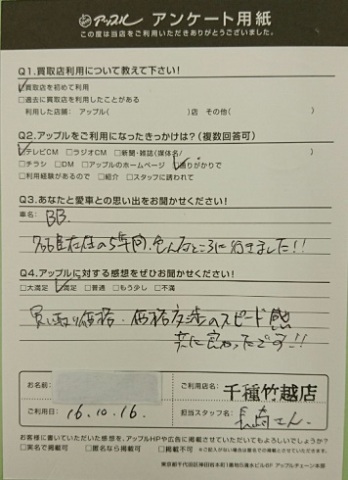 アップル アンケート用紙
この度は当店をご利用いただきありがとうございました。
Q1.買取店利用について教えて下さい!
□買取店を初めて利用
□過去に買取店を利用したことがある
利用した店舗:アップル( )店 その他( )
Q2.アップルをご利用になったきっかけは?(複数回答可)
□テレビCM □ラジオCM □新聞・雑誌(媒体名/ )
□チラシ □DM □アップルのホームページ □通りがかりで
□利用経験があるので □紹介 □スタッフに誘われて
Q3.あなたと愛車との思い出をお聞かせください!
車名:BB
名古屋在住の5年間、色んなところに行きました!!
Q4.アップルに対する感想をぜひお聞かせください!
□大満足 □満足 □普通 □もう少し □不満
買い取り価格・価格交渉のスピード感
共に良かったです!!
お名前:
ご利用日:16.10.16.
ご利用店名:千種竹越店
担当スタッフ名:長崎さん
お客様に書いていただいた感想を、アップルHPや広告に掲載させていただいてもよろしいでしょうか?
□実名で掲載可 □匿名なら掲載可 □掲載不可